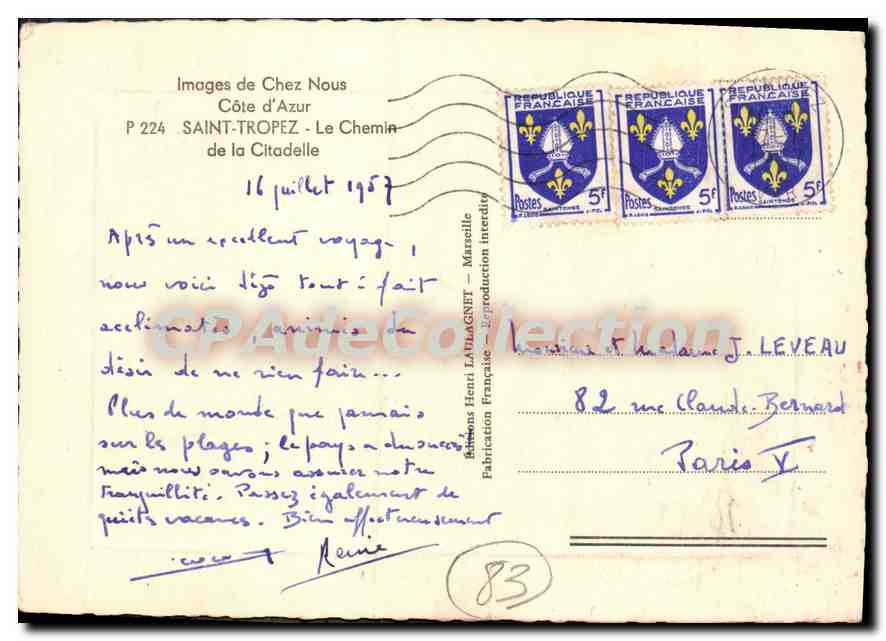 Images de Chez Nous
Côte d'Azur
P 224 SAINT-TROPEZ - Le Chemin
de la Citadelle
16 juillet 1957
Après un excellent voyage,
nous voici déjà tout à fait
acclimatés, animés du
désir de ne rien faire...
Plus de monde que jamais
sur les plages; le pays a du succès
mais nous savons assurer notre
tranquillité. Passez également de
vacances. Bien affectueusement
Reine
83
Éditions Henri LAULAGNET - Marseille
Fabrication Française - Reproduction interdite
REPUBLIQUE
FRANÇAISE
Postes 5f
SAINTONGE
REPUBLIQUE
FRANÇAISE
Postes 5f
SAINTONGE
REPUBLIQUE
FRANÇAISE
Postes 5f
SAINTONGE
Monsieur et Madame J. LEVEAU
82 rue Claude-Bernard
Paris V
CPAdeCollection